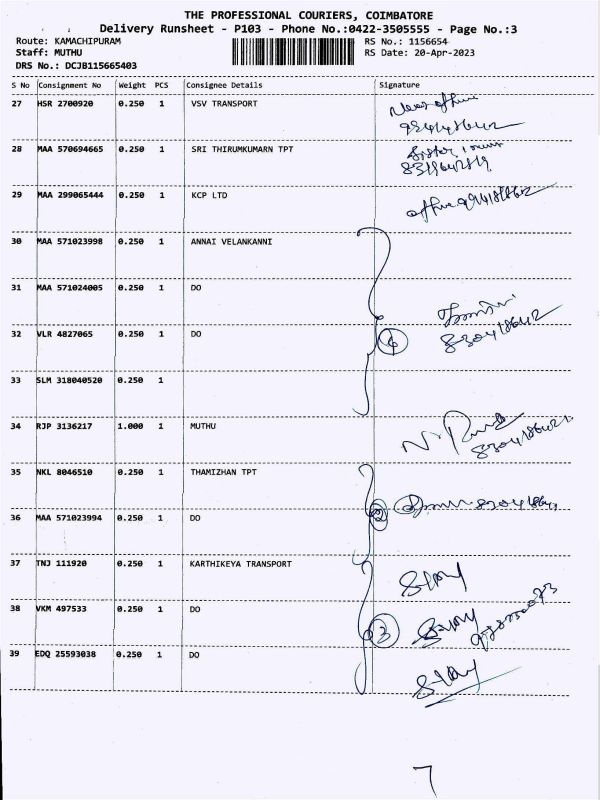 THE PROFESSIONAL COURIERS, COIMBATORE
Delivery Runsheet - P103 - Phone No.:0422-3505555 - Page No.:3
Route: KAMACHIPURAM RS No.: 1156654
Staff: MUTHU RS Date: 20-Apr-2023
DRS No.: DCJB115665403
S No Consignment No Weight PCS Consignee Details Signature
27 HSR 2700920 0.250 1 VSV TRANSPORT
28 MAA 570694665 0.250 1 SRI THIRUMKUMARN TPT
29 MAA 299065444 0.250 1 KCP LTD office
30 MAA 571023998 0.250 1 ANNAI VELANKANNI
31 MAA 571024005 0.250 1 DO
32 VLR 4827065 0.250 1 DO
33 SLM 318040520 0.250 1
34 RJP 3136217 1.000 1 MUTHU
35 NKL 8046510 0.250 1 THAMIZHAN TPT
36 MAA 571023994 0.250 1 DO 2
37 TNJ 111920 0.250 1 KARTHIKEYA TRANSPORT
38 VKM 497533 0.250 1 DO 3
39 EDQ 25593038 0.250 1 DO
7